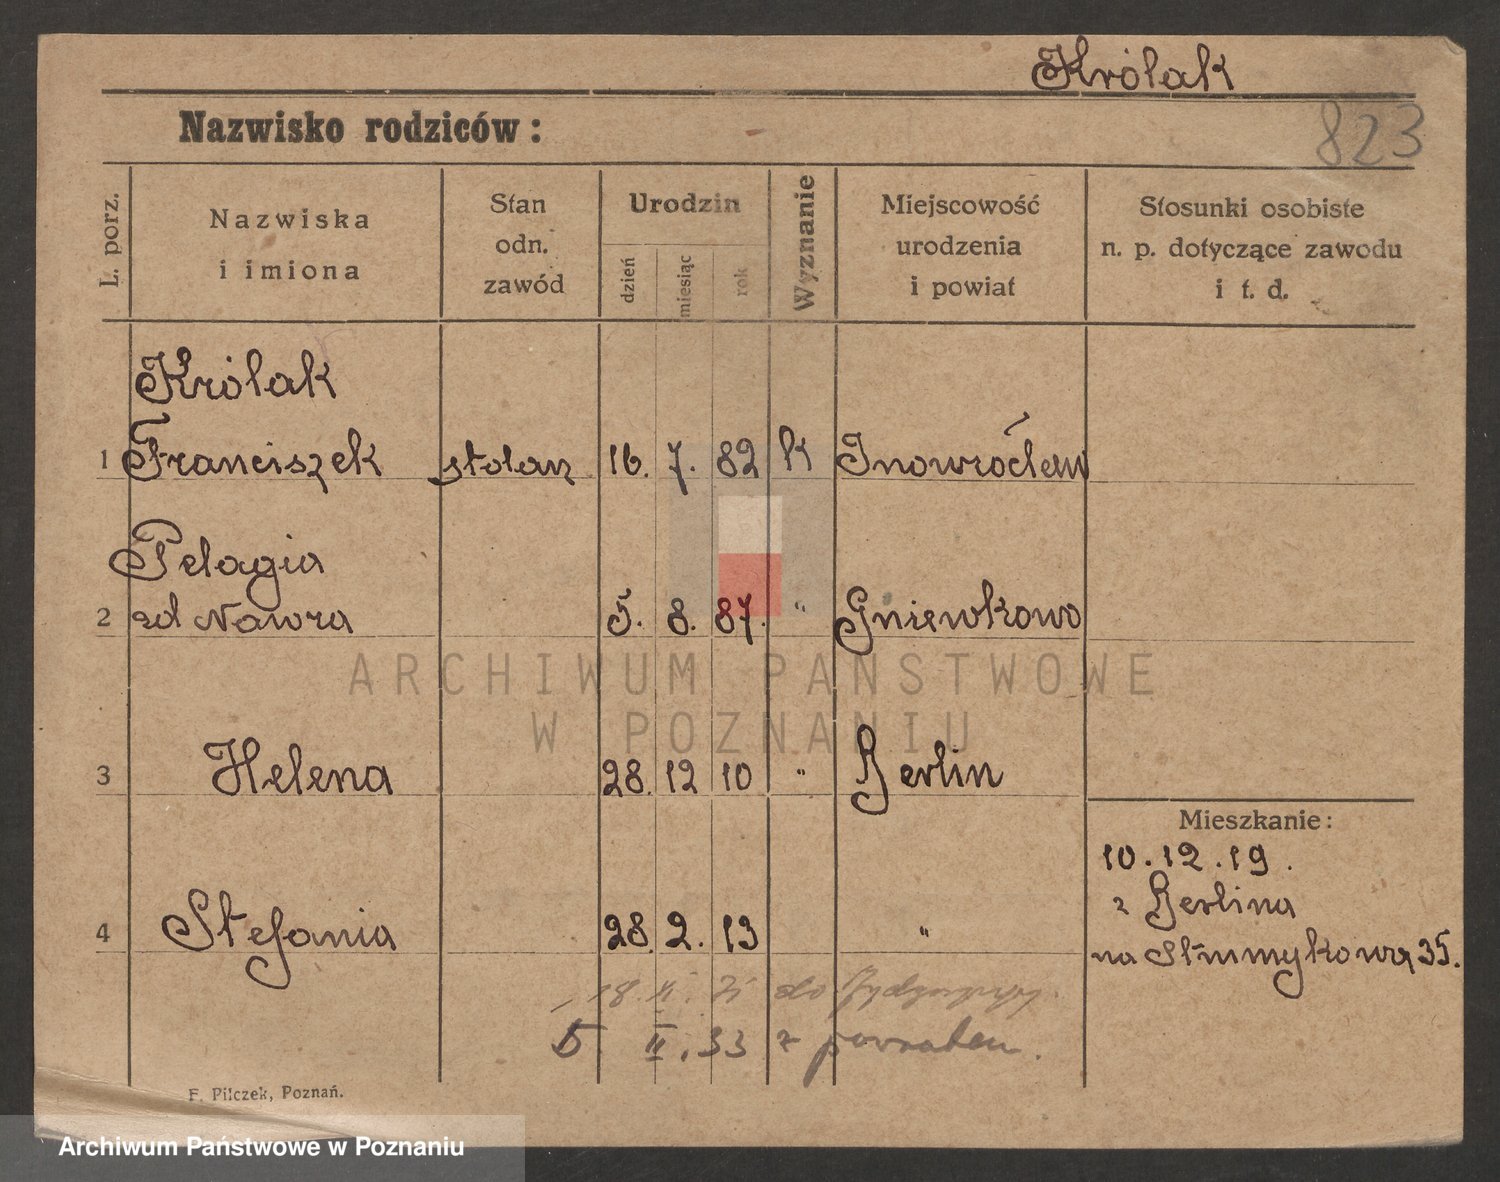 Królak
823
Nazwisko rodziców:
L. porz.
Nazwiska
i imiona
Stan
odn.
zawód
Urodzin
dzień
miesiąc
rok
Wyznanie
Miejscowość
urodzenia
i powiat
Stosunki osobiste
n. p. dotyczące zawodu
i t. d.
Królak
1 Franciszek stolarz 16. 7. 82 k Inowrocław
Pelagia
2 zd Nawra 5. 8. 87. " Gniewkowo
3 Helena 28. 12 10 " Berlin
Mieszkanie:
10.12.19.
z Berlina
4 Stefania 28. 2. 13 "
na 35.
18. II. do
5 II. 33 z powrotem.
F. Pilczek, Poznań.
ARCHIWUM PAŃSTWOWE
W POZNANIU
Archiwum Państwowe w Poznaniu